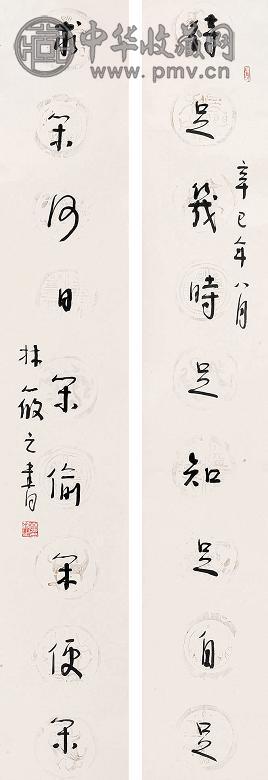 中华收藏网
www.pmv.cn
待足幾時足知足自足
辛巳年八月
求閑何日閑偷閑便閑
林筱之書